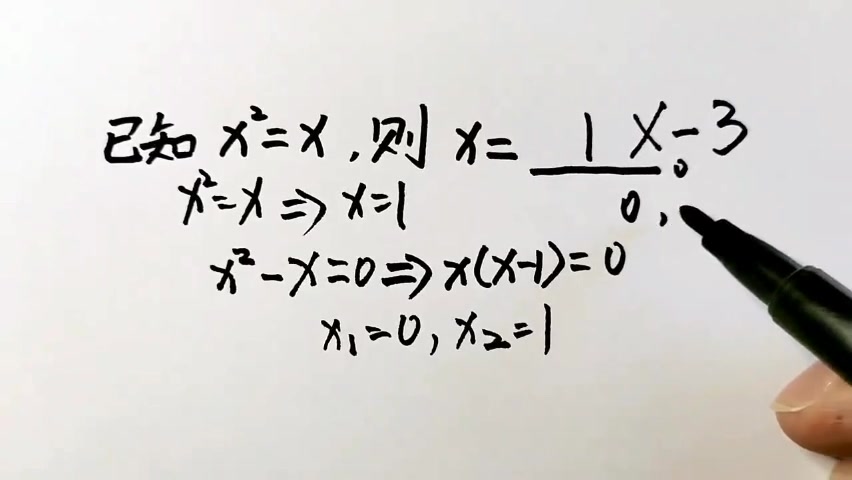 已知 x²=x,则 x= 1 X-3。
0,
x²=x⇒x=1
x²-x=0⇒x(x-1)=0
x₁=0, x₂=1